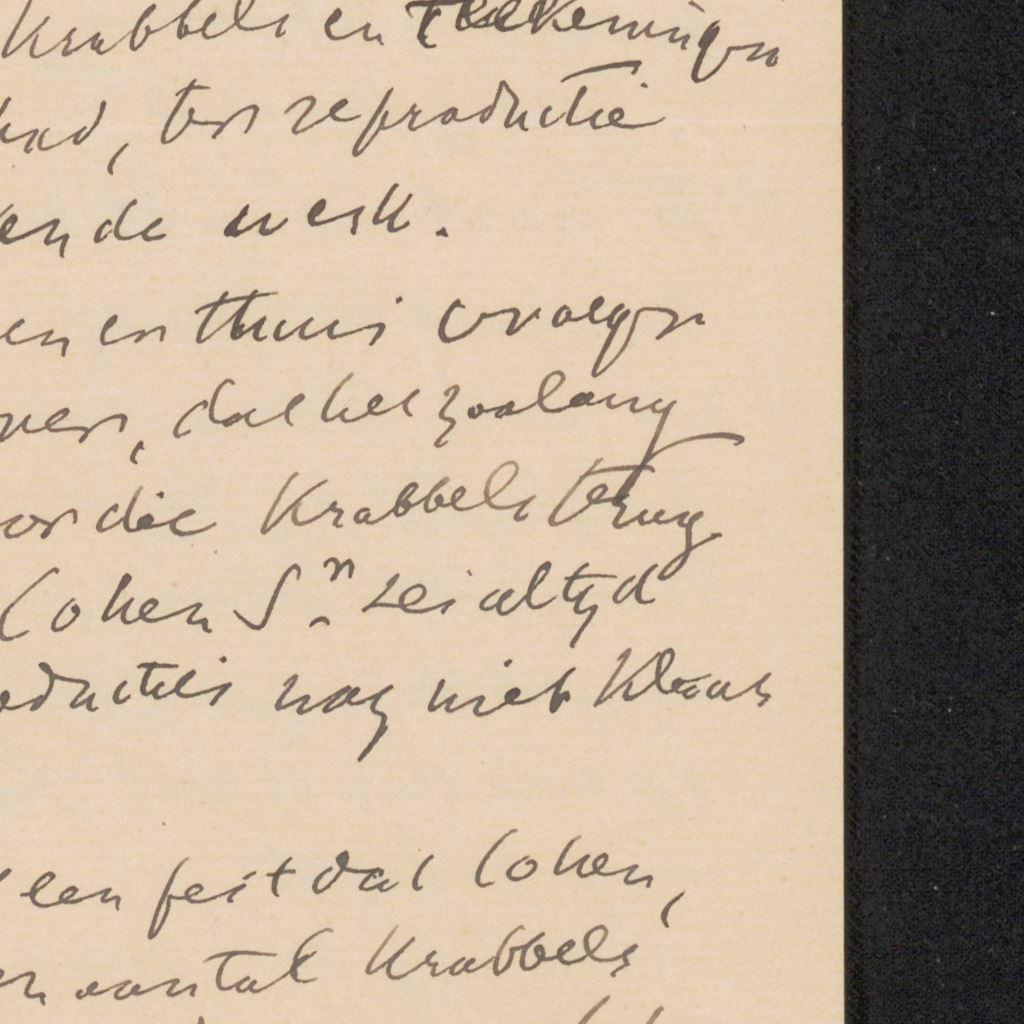 Krabbels en Teekeningen
had, ter reproductie
ende werk.
en en thuis vroegen
ven, dat het zoolang
or die Krabbels terug
Cohen Sr. zei altyd
oducties nog niet klaar
een feit dat Cohen,
n aantal Krabbels